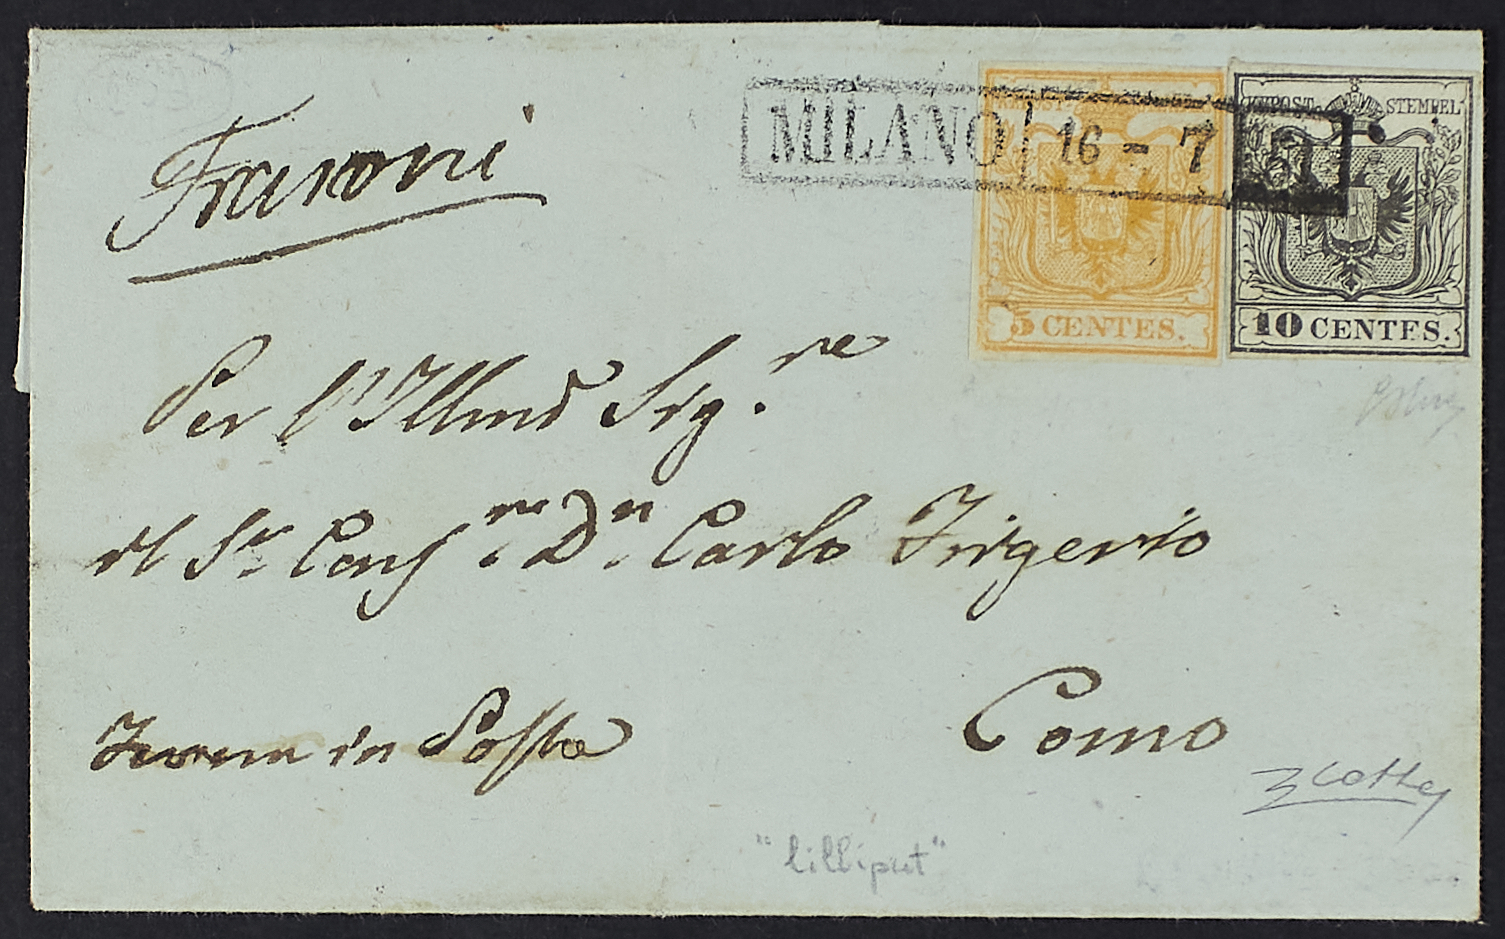 MILANO 16 - 7
KKPOST-STEMPEL
5 CENTES.
10 CENTES.
Per l'Illmo Sig.re
Sr Cons.re Dn. Carlo Frigerio
Como
Ferma in Posta
"lilliput"